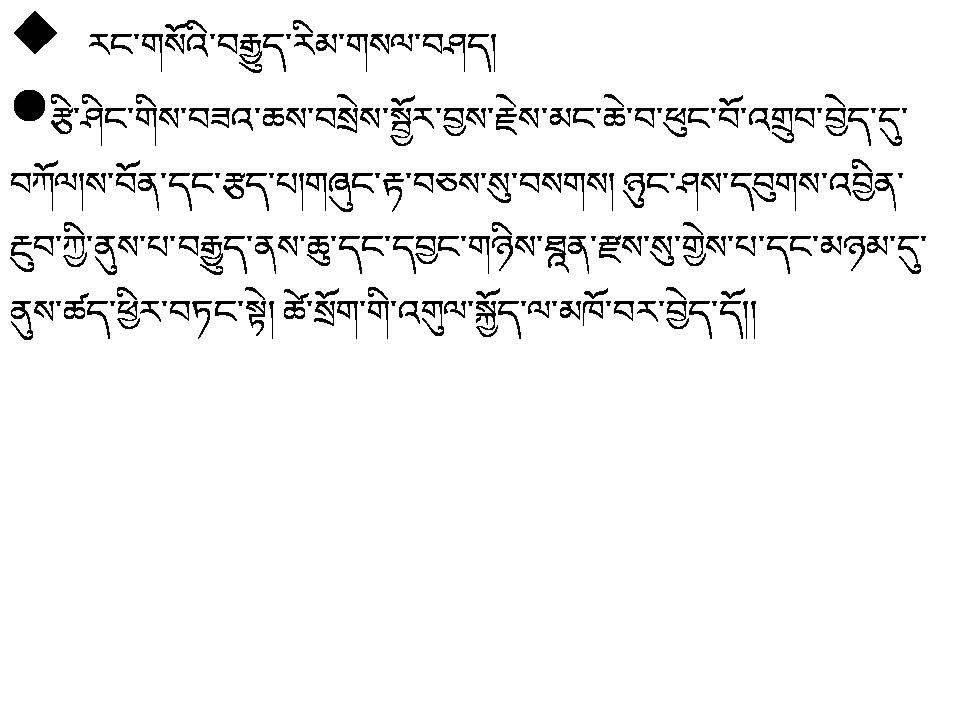 ◆ རང་གསོའི་བརྒྱུད་རིམ་གསལ་བཤད།
●རྩི་ཤིང་གིས་བཟའ་ཆས་བསྲེས་སྦྱོར་བྱས་རྗེས་མང་ཆེ་བ་ཕུང་པོ་འགྲུབ་བྱེད་དུ་
བཀོལ།ས་བོན་དང་རྩད་པ།གཞུང་རྟ་བཅས་སུ་བསགས། ཉུང་ཤས་དབུགས་འབྱིན་
རྔུབ་ཀྱི་ནུས་པ་བརྒྱུད་ནས་ཆུ་དང་དབྱང་གཉིས་ཟླན་རྫས་སུ་གྱེས་པ་དང་མཉམ་དུ་
ནུས་ཚད་ཕྱིར་བཏང་སྟེ། ཚེ་སྲོག་གི་འགུལ་སྐྱོད་ལ་མཁོ་བར་བྱེད་དོ།།